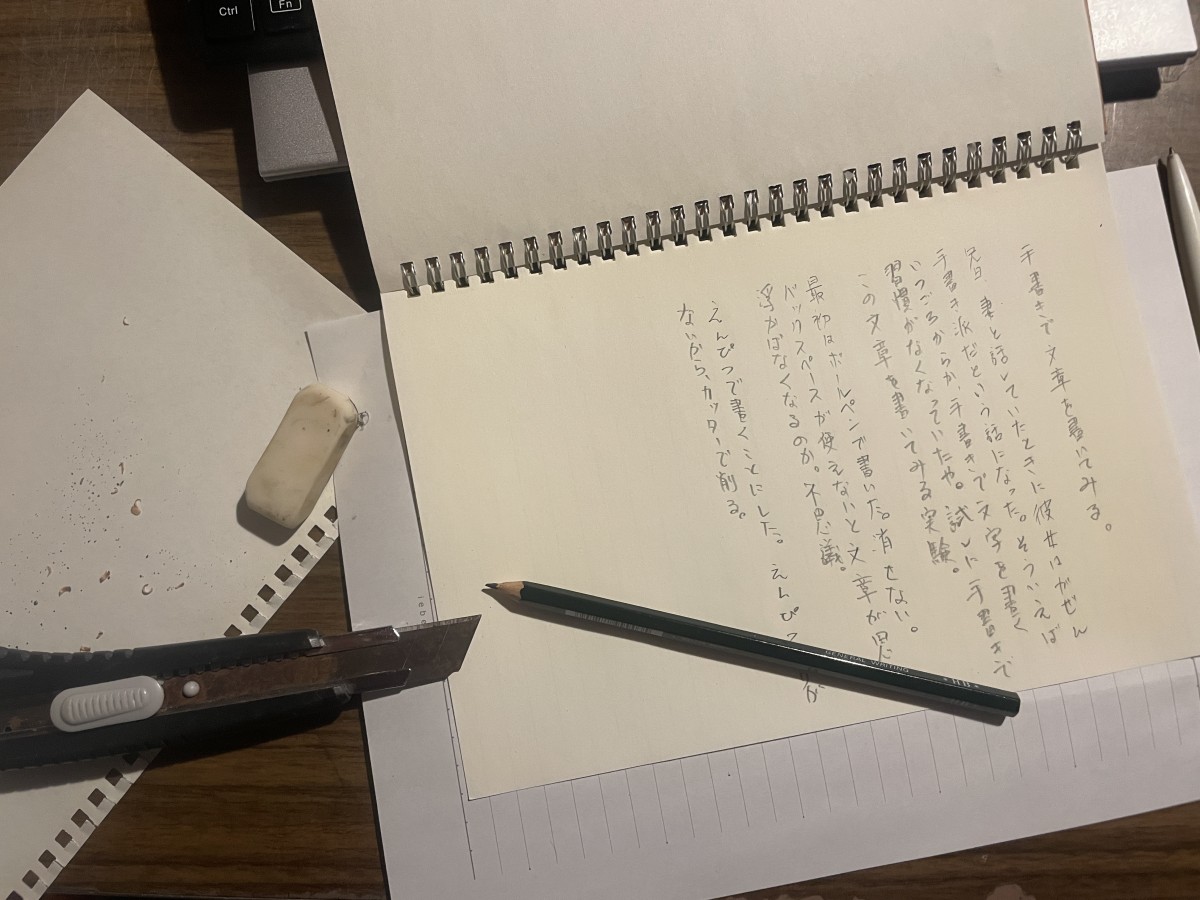 手書きで文章を書いてみる。
先日、妻と話していたときに彼女はがぜん
手書き派だという話になった。そういえば
いつごろからか、手書きで文字を書く
習慣がなくなっていたや。試しに手書きで
この文章を書いてみる実験。
最初はボールペンで書いた。消せない。
バックスペースが使えないと文章が思
浮かばなくなるのか。不思議。
えんぴつで書くことにした。えんぴつ
が
ないから、カッターで削る。
GENERAL WRITING
HB
Ctrl
Fn